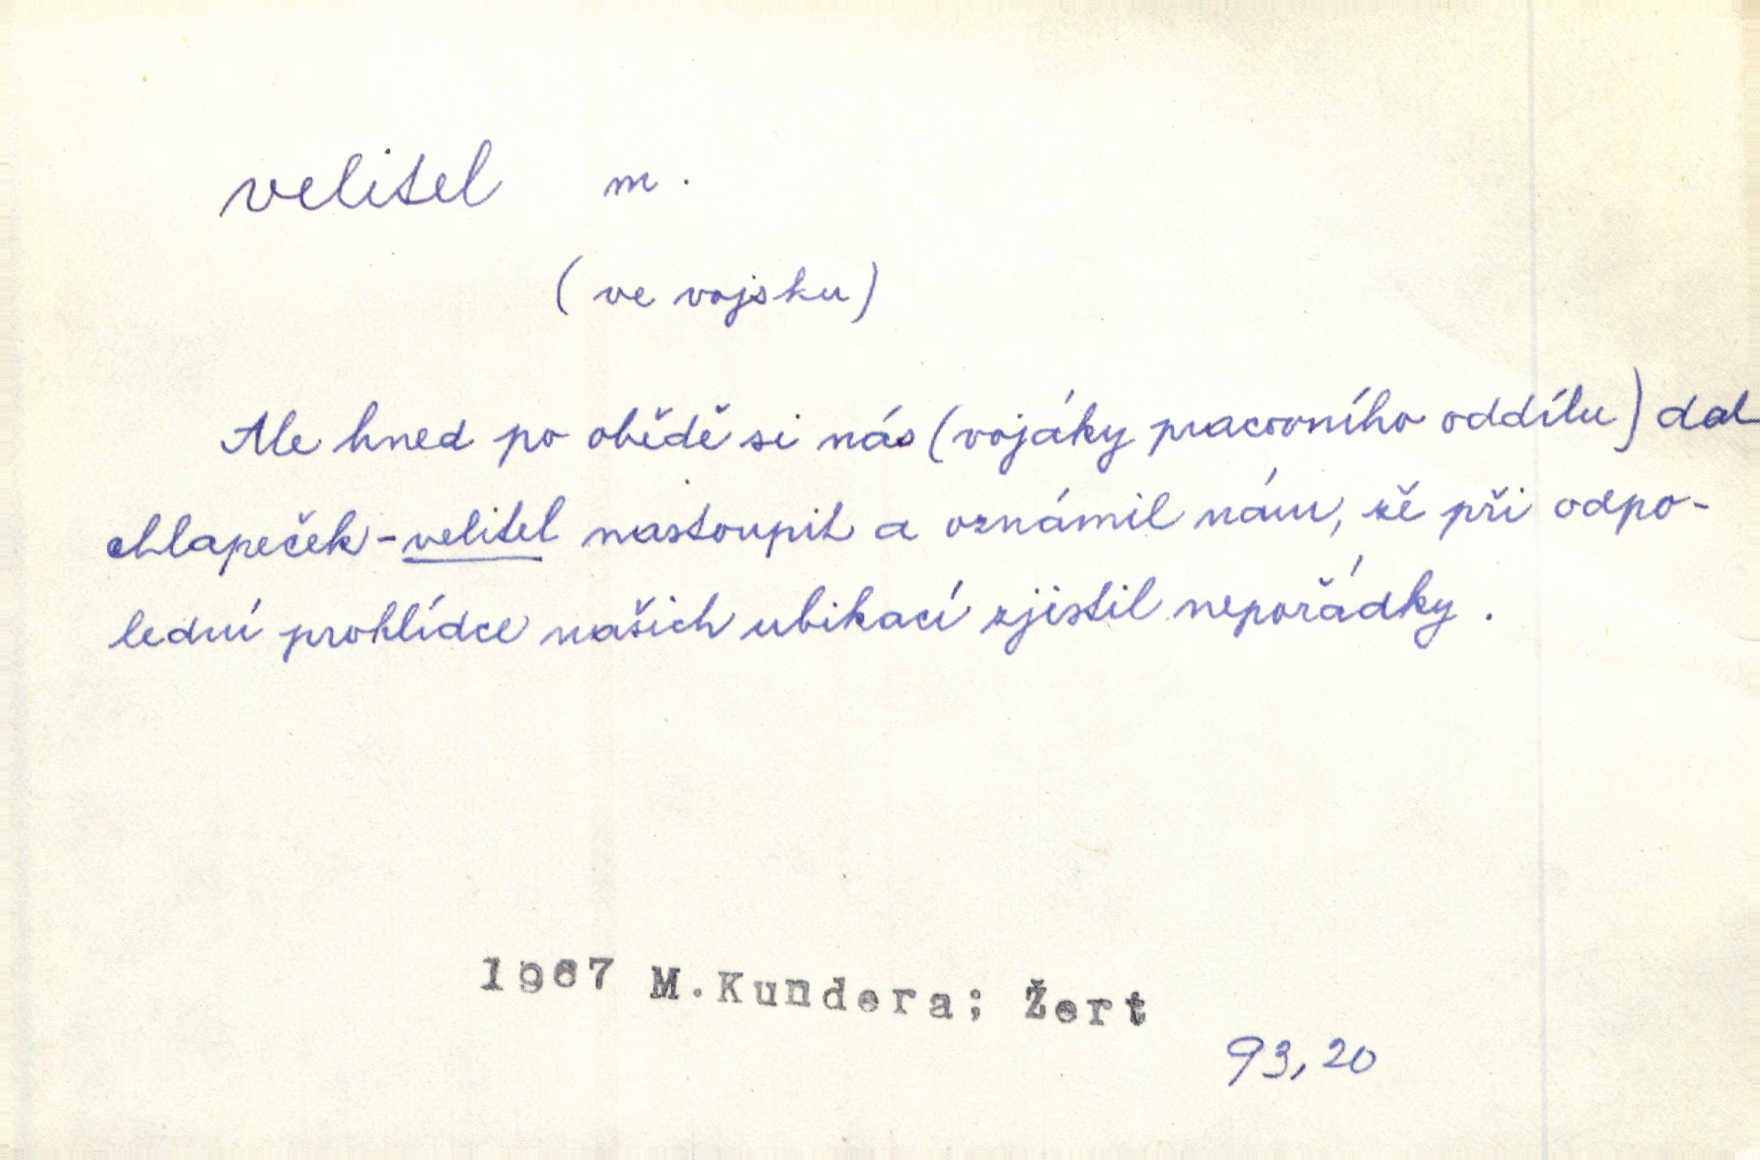 velitel m.
(ve vojsku)
Ale hned po obědě si nás (vojáky pracovního oddílu) dal
chlapeček-velitel nastoupit a oznámil nám, že při odpo-
lední prohlídce našich ubikací zjistil nepořádky.
1967 M.Kundera; Žert
93,20